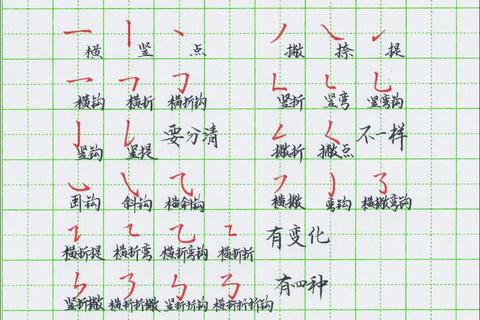 横 竖 点 撇 捺 提
横钩 横折 横折钩 竖折 竖弯 竖弯钩
竖钩 竖提 要分清 撇折 撇点 不一样
卧钩 斜钩 横斜钩 横撇 弯钩 横撇弯钩
横折提 横折弯 横折弯钩 横折折 有变化
竖折撇 横折折撇 竖折折钩 横折折折钩 有四种